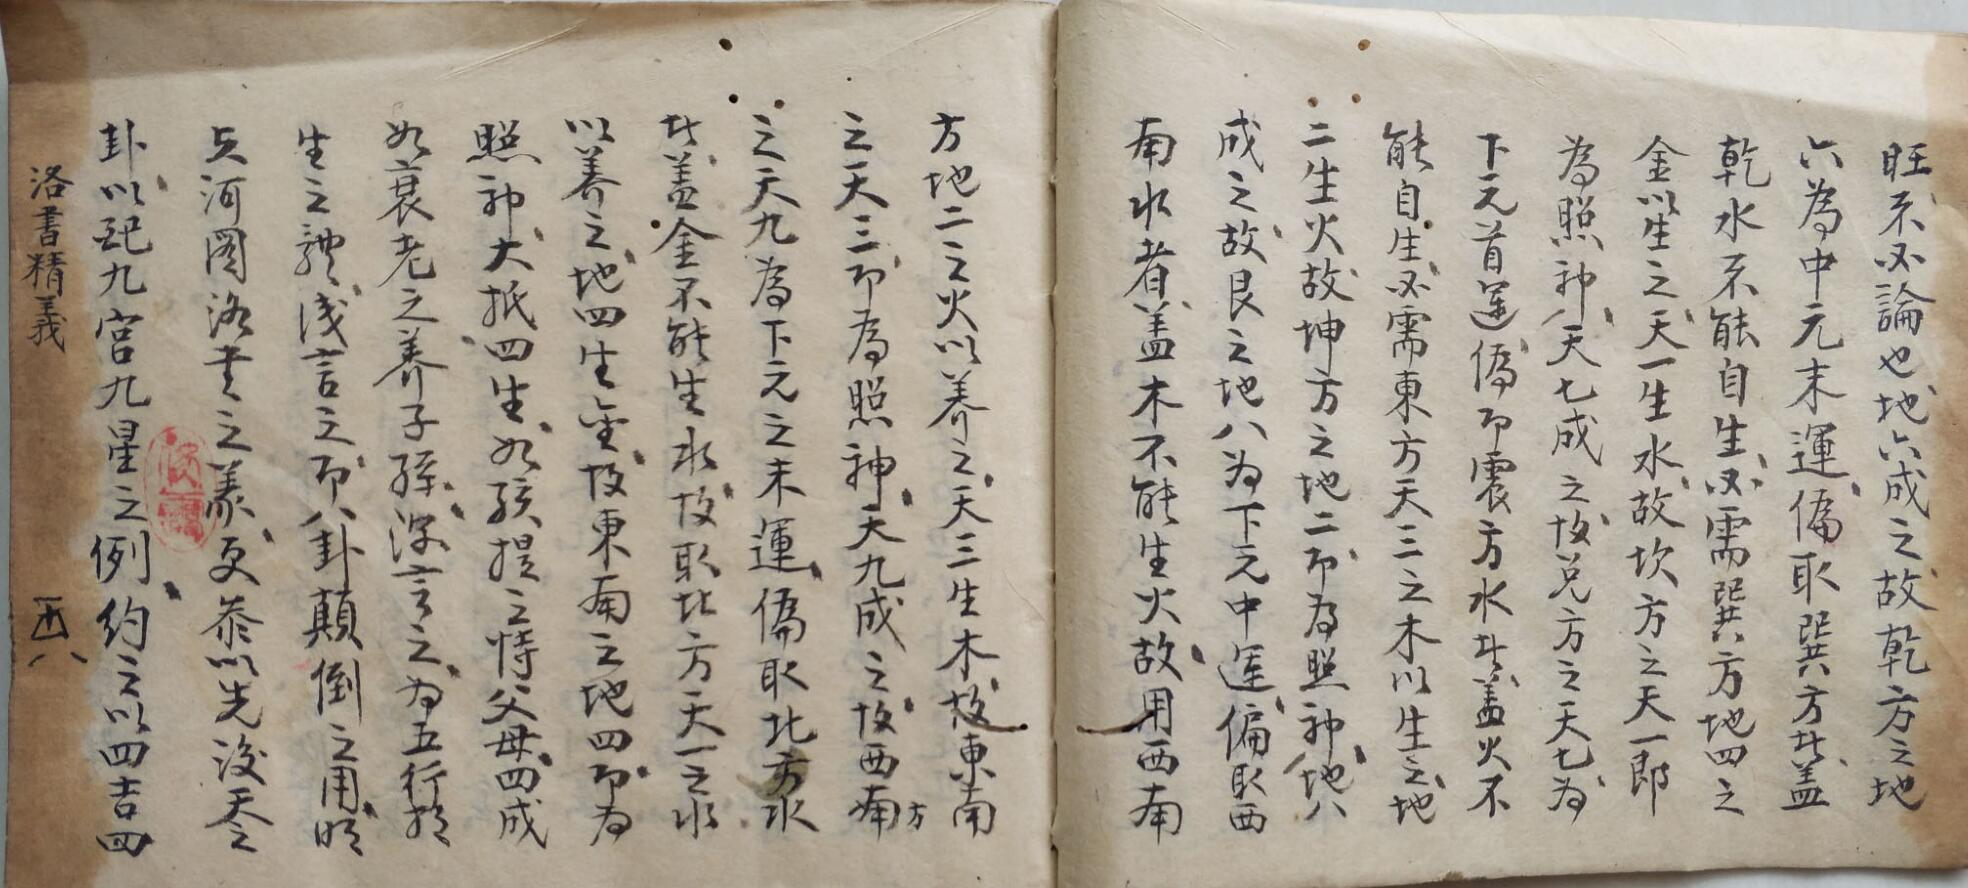 旺不必論也地六成之故乾方之地
六為中元末運偏取巽方北蓋
乾水不能自生必需巽方地四之
金以生之天一生水故坎方之天一郎
為照神天七成之故兌方之天七为
下元首運偏即震方水北蓋火不
能自生必需東方天三之木以生之地
二生火故坤方之地二即為照神地八
成之故艮之地八为下元中運偏取西
南水者蓋木不能生火故用西南
方地二之火以养之天三生木故東南
之天三即為照神天九成之故西南方
之天九為下元之末運偏取北方水
北蓋金不能生水故取北方天一之水
以養之地四生金故東南之地四即为
照神大抵四生如孩提之恃父母四成
如衰老之養子孫深言之为五行於
生之淺言之即八卦顛倒之用明
兵河圖洛书之義更參以先後天之
卦以配九宮九星之例約之以四吉四
洛書精義
八